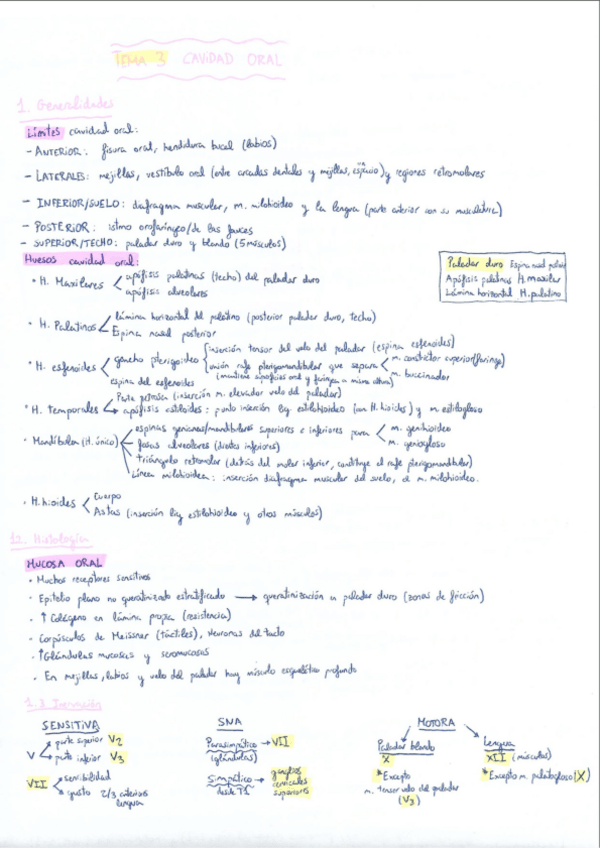 TEMA 3 CAVIDAD ORAL
1. Generalidades
Límites cavidad oral:
- ANTERIOR: fisura oral, hendidura bucal (labios)
- LATERALES: mejillas, vestíbulo oral (entre arcadas dentales y mejillas, espacio) y regiones retromolares
- INFERIOR/SUELO: diafragma muscular, m. milohioideo y la lengua (parte anterior con su musculatura)
- POSTERIOR: istmo orofaríngeo/de las fauces
- SUPERIOR/TECHO: paladar duro y blando (5 músculos)
Huesos cavidad oral:
· H. Maxilares < apófisis palatinas (techo) del paladar duro
apófisis alveolares
Paladar duro Espina nasal
Apófisis palatina H. maxilar
Lámina horizontal H. palatino
· H. Palatinos < lámina horizontal del palatino (posterior paladar duro, techo)
Espina nasal posterior
· H. esfenoides < gancho pterigoideo { inserción tensor del velo del paladar (espina esfenoides)
unión rafe pterigomandibular que separa < m. constrictor superior (faringe)
m. buccinador
(mantiene apófisis oral y faringea a misma altura)
espina del esfenoides
Parte petrosa (inserción m. elevador velo del paladar)
· H. Temporales → apófisis estiloides: punto inserción lig estilohioideo (con H. hioides) y m. estilogloso
· Mandíbula (H. único) < espinas genianas/mandibulares superiores e inferiores para < m. genihioideo
m. geniogloso
fosas alveolares (dientes inferiores)
triángulo retromolar (detrás del molar inferior, constituye el rafe pterigomandibular)
Línea milohioidea: inserción diafragma muscular del suelo, el m. milohioideo.
· H. hioides < Cuerpo
Astas (inserción lig estilohioideo y otros músculos)
12. Histología
MUCOSA ORAL
· Muchos receptores sensitivos
· Epitelio plano no queratinizado estratificado → queratinización en paladar duro (zonas de fricción)
· ↑ Colágeno en lámina propia (resistencia)
· Corpúsculos de Meissner (táctiles), neuronas del tacto
· ↑ Glándulas mucosas y seromucosas
· En mejillas, labios y velo del paladar hay músculo esquelético profundo
1.3 Inervación
SENSITIVA
V < parte superior V2
parte inferior V3
VII < sensibilidad
gusto 2/3 anteriores
lengua
SNA
Parasimpático → VII
(glándulas)
Simpático → ganglios
desde T1 cervicales
superiores
MOTORA
Paladar blando
X
*Excepto
m. tensor velo del paladar
(V3)
Lengua
XII (músculos)
*Excepto m. palatogloso (X)